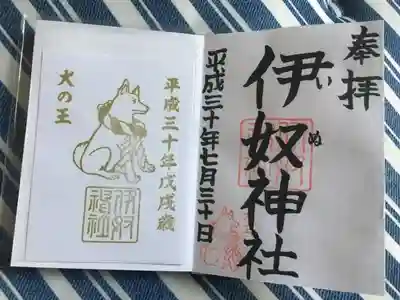 奉拝
伊奴神社
いぬ
平成三十年七月三十日
平成三十年戊戌歳
犬の王
伊奴
神社